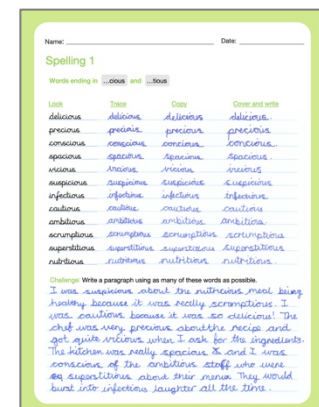 Name: Date:
Spelling 1
Words ending in ...cious and ...tious
Look Trace Copy Cover and write
delicious delicious delicious delicious
precious precious precious precious
conscious conscious concious concious
spacious spacious spacious spacious
vicious vicious vicious vicious
suspicious suspicious suspicious suspicious
infectious infectious infectious infectious
cautious cautious cautious cautious
ambitious ambitious ambitious ambitions
scrumptious scrumptious scrumptious scrumptions
superstitious superstitious superstitious superstitious
nutritious nutritious nutritious nutritious
Challenge: Write a paragraph using as many of these words as possible.
I was suspicious about the nutricious meal being
healthy because it was really scrumptious. I
was cautious because it was so delicious! The
chef was very precious about the recipe and
got quite vicious when I ask for the ingredients.
The kitchen was really spacious & and I was
conscious of the ambitious staff who were
superstitious about their menu. They would
burst into infectious laughter all the time.